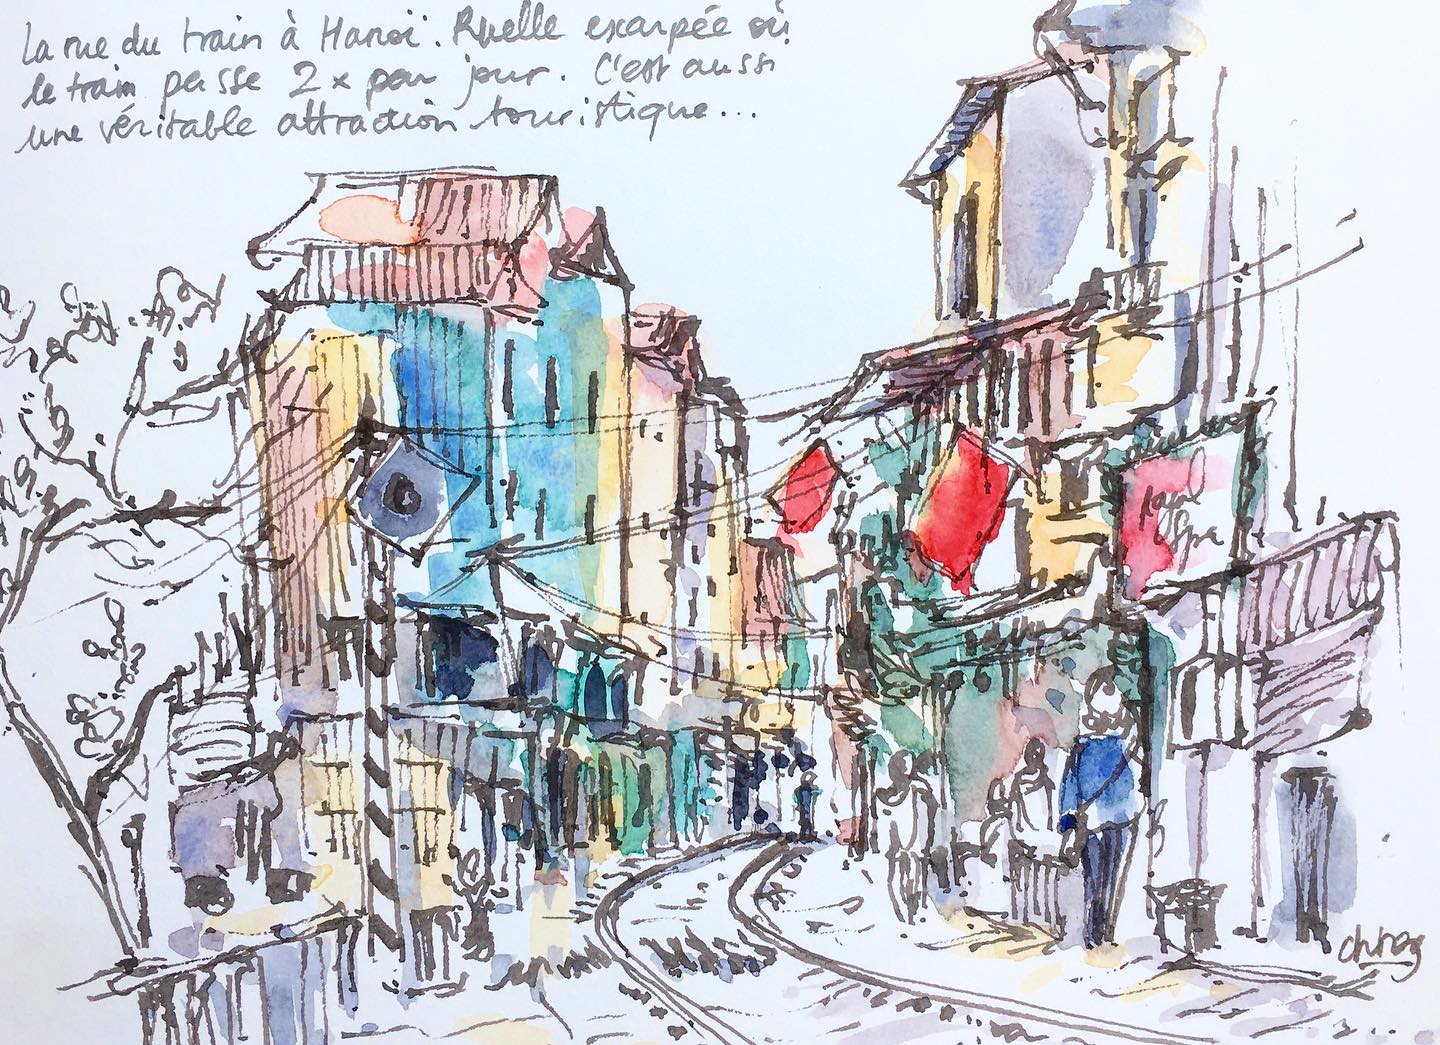 La rue du train à Hanoï. Ruelle escarpée où
le train passe 2 x par jour. C'est aussi
une véritable attraction touristique...
Spa